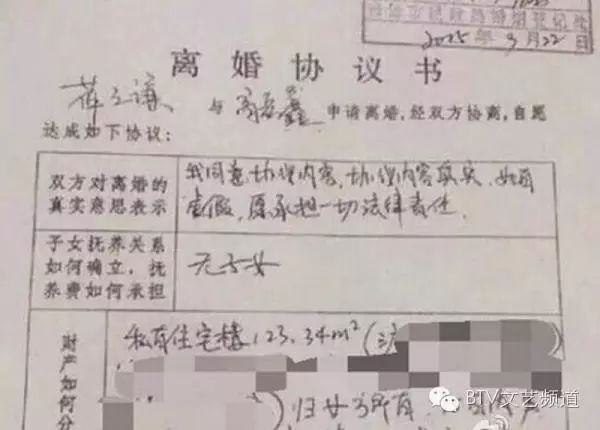 2015年9月22日
离婚协议书
薛之谦 与 高磊鑫 申请离婚,经双方协离,自愿
达成如下协议:
双方对离婚的
真实意思表示
我同意协议内容,协议内容真实,如有
虚假,愿承担一切法律责任.
子女抚养关系
如何确立,抚
养费如何承担
无子女
财产如何分
私有住宅楼123.34m²(沪
)归女方所有.
BTV文艺频道